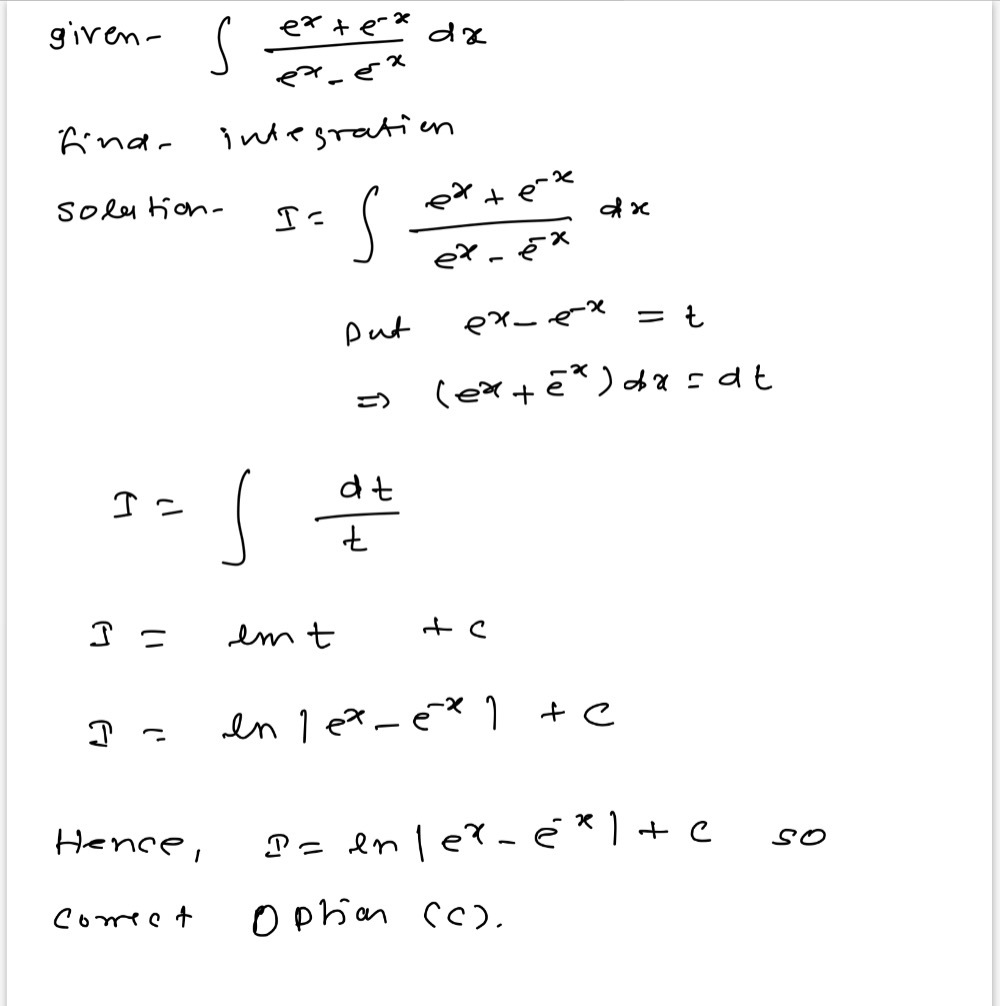 given- ∫ (e^x + e^-x)/(e^x - e^-x) dx
find- integration
solution- I = ∫ (e^x + e^-x)/(e^x - e^-x) dx
put e^x - e^-x = t
⇒ (e^x + e^-x) dx = dt
I = ∫ dt/t
I = ln t + c
I = ln | e^x - e^-x | + c
Hence, I = ln | e^x - e^-x | + c so
correct option (c).